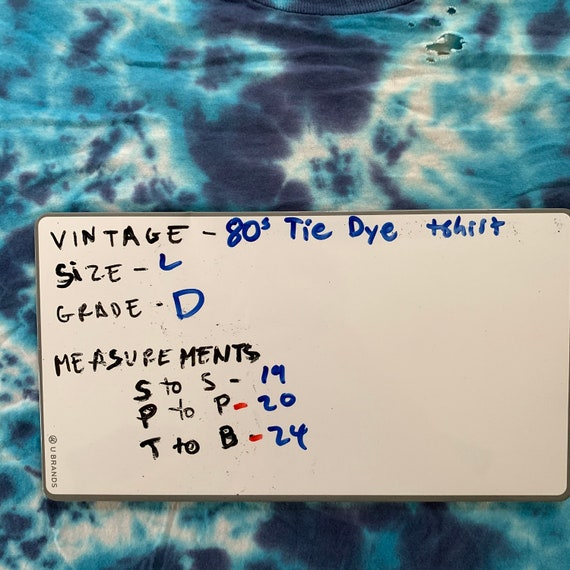 VINTAGE - 80s Tie Dye tshirt
SiZE - L
GRADE - D
MEASUREMENTS
S to S - 19
P to P - 20
T to B - 24
U BRANDS